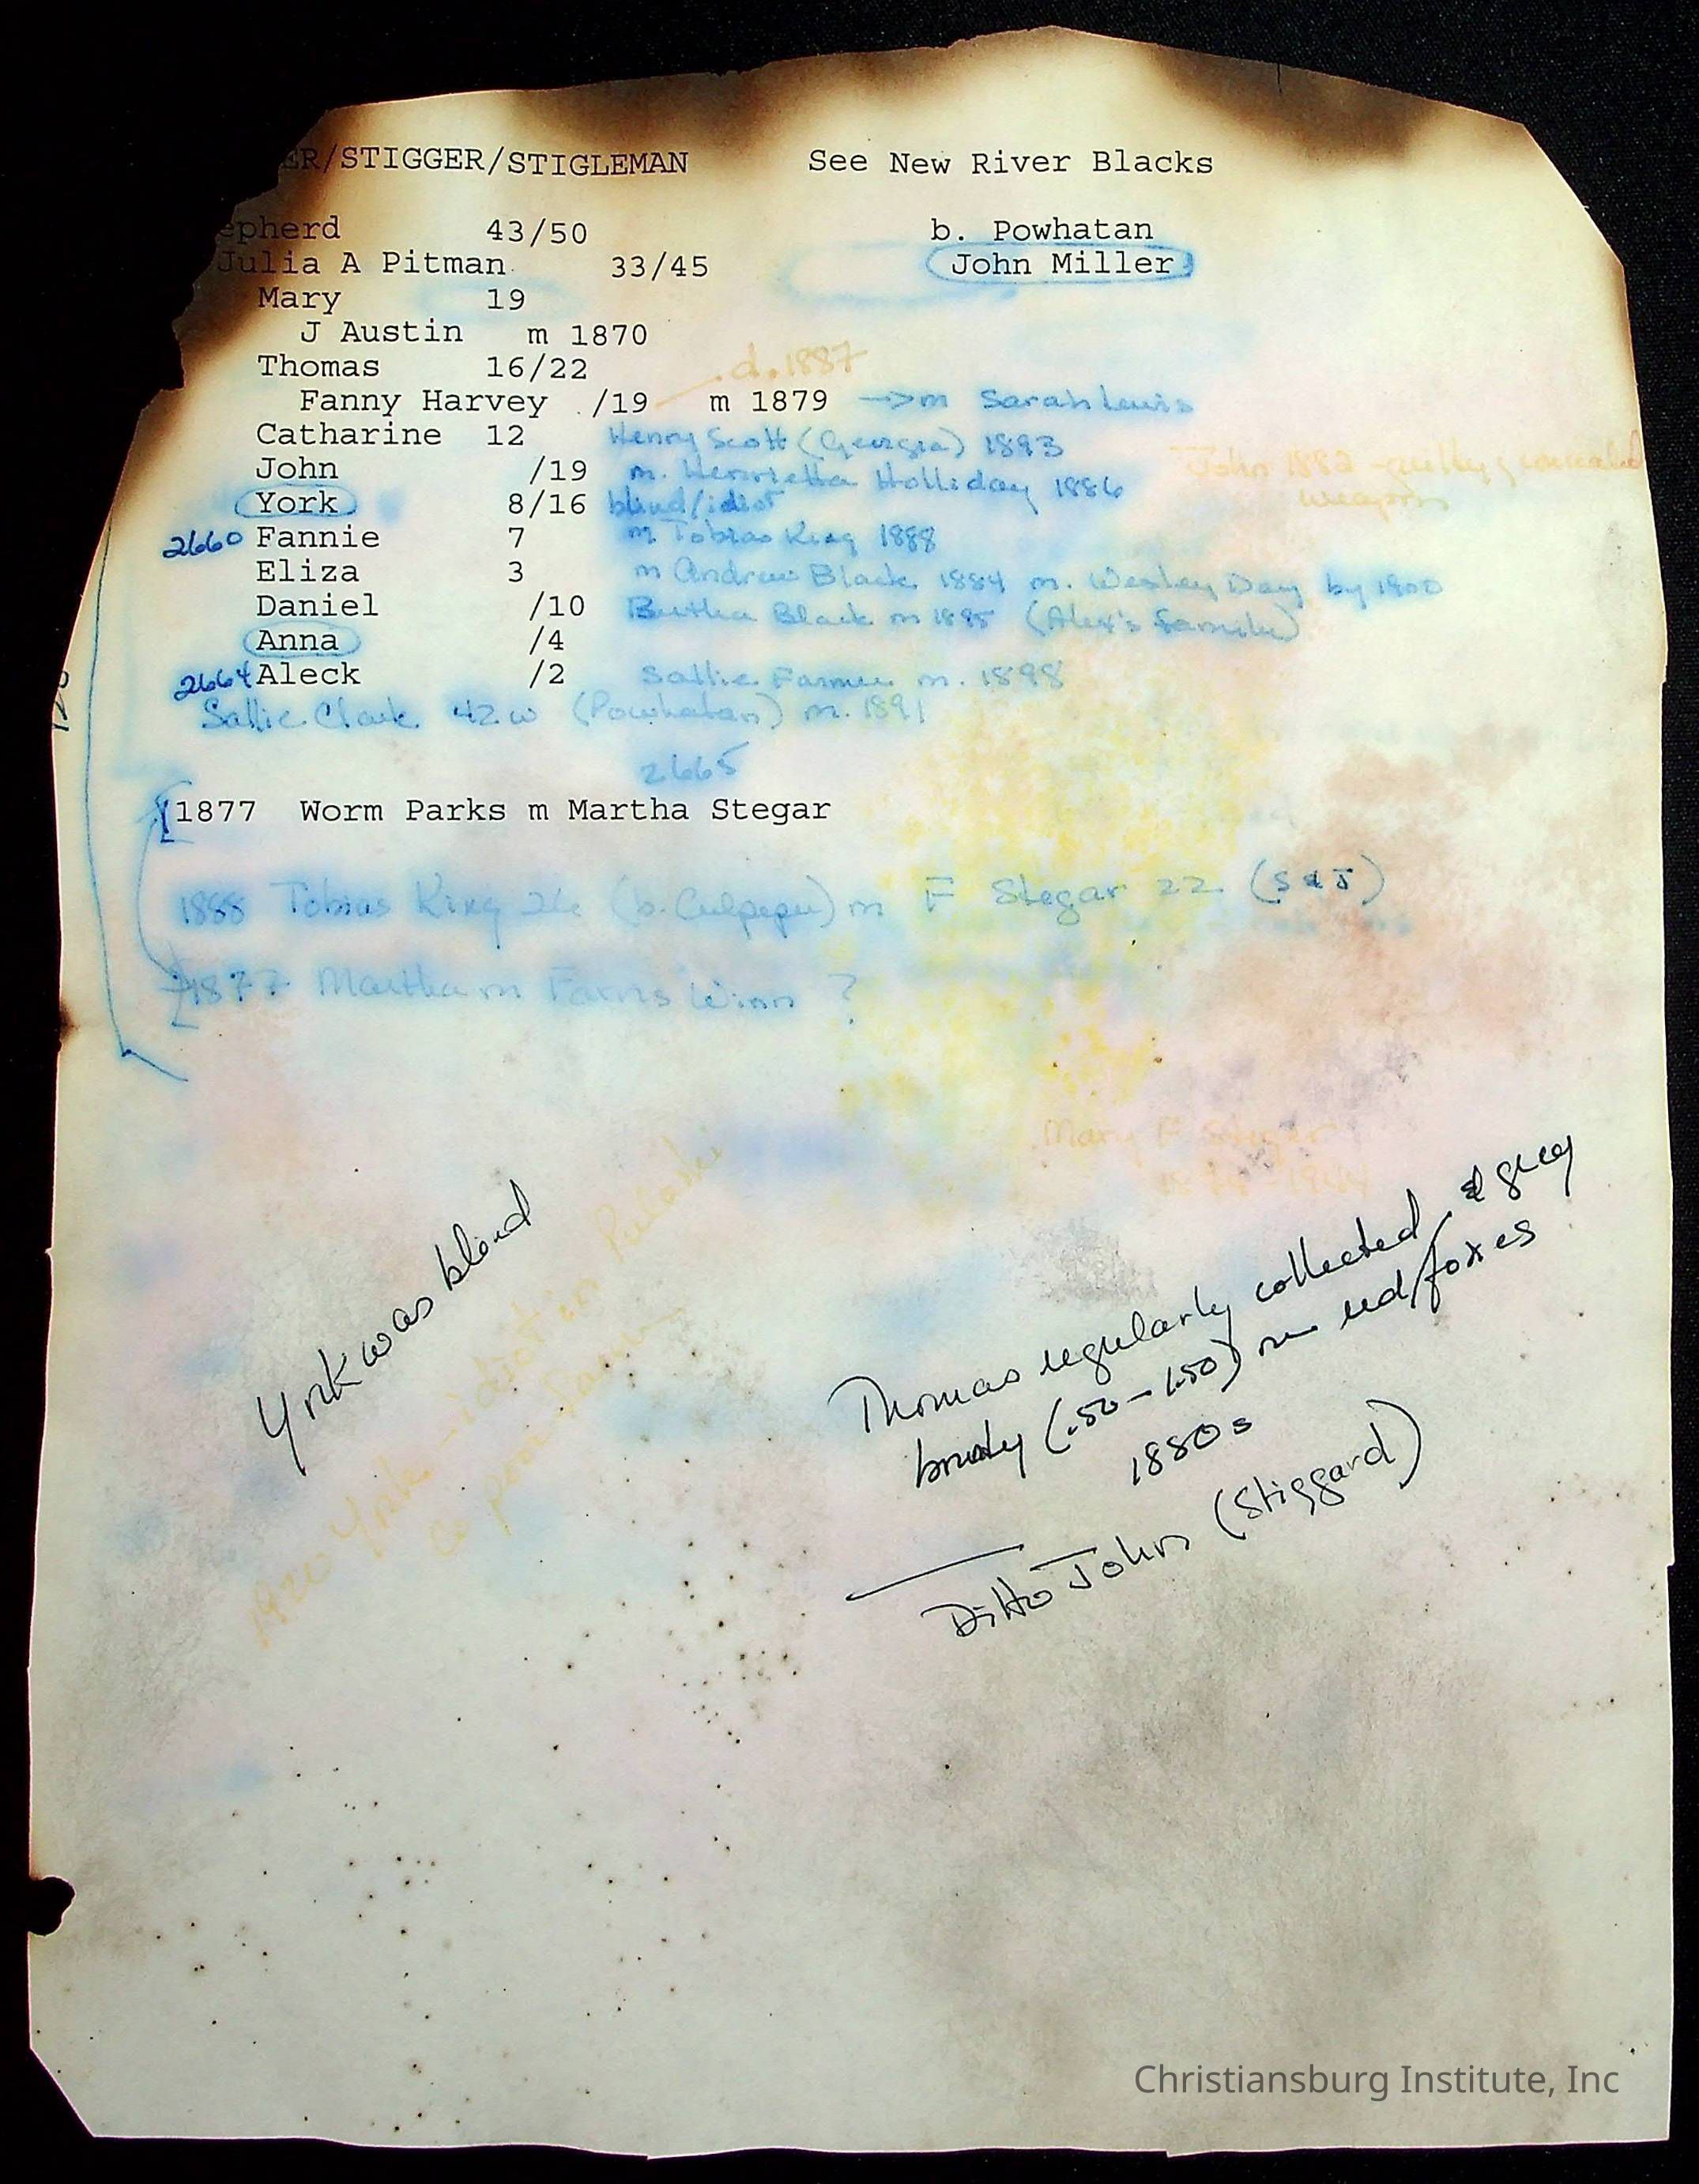 ER/STIGGER/STIGLEMAN See New River Blacks
epherd 43/50 b. Powhatan
Julia A Pitman 33/45 John Miller
Mary 19
J Austin m 1870
Thomas 16/22 d. 1887
Fanny Harvey /19 m 1879 → m Sarah Lewis
Catharine 12 Henry Scott (Georgia) 1893
John /19 m. Henrietta Holliday 1886 John 1882 guilty concealed
weapons
York 8/16 blind/idiot
2660 Fannie 7 m Tobias King 1888
Eliza 3 m Andrew Black 1884 m. Wesley Day by 1900
Daniel /10 Bertha Black m 1895 (Alex's family)
Anna /4
2664 Aleck /2 Sallie Farmer m. 1898
Sallie Clark 42 w (Powhatan) m. 1891
2665
[1877 Worm Parks m Martha Stegar
1888 Tobias King 26 (b. Culpeper) m F Stegar 22 (S & J)
1877 Martha m Farris Winn ?
Mary F
1944
York was blind
York - idiot in Pulaski
co poor farm
Thomas regularly collected
bounty (.50-1.50) on red/ & grey foxes
1880s
Ditto John (Stiggard)
Christiansburg Institute, Inc